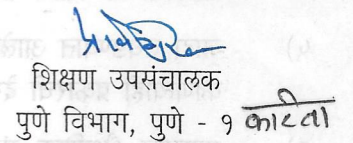 शिक्षण उपसंचालक
पुणे विभाग, पुणे - १ करिता